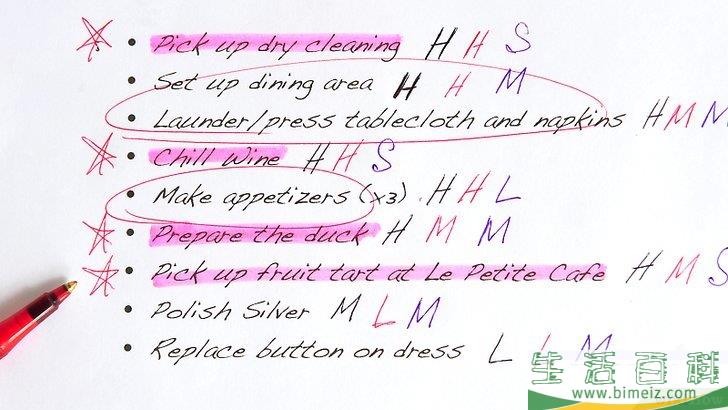 • Pick up dry cleaning H H S
• Set up dining area H H M
• Launder/press tablecloth and napkins H M M
• Chill Wine H H S
• Make appetizers (x3) H H L
• Prepare the duck H M M
• Pick up fruit tart at Le Petite Cafe H M S
• Polish Silver M L M
• Replace button on dress L L M
生活百科
www.bimeiz.com